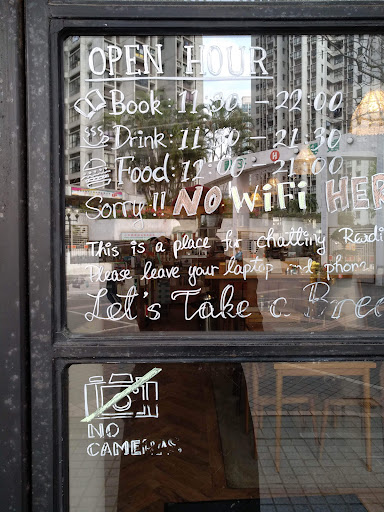 OPEN HOUR
Book: 11:30 - 22:00
Drink: 11:30 - 21:30
Food: 12:00 - 21:00
Sorry!! NO WiFi HER
This is a place for chatting Readi
Please leave your laptop and phone
Let's Take a Brea
NO
CAMERAS.